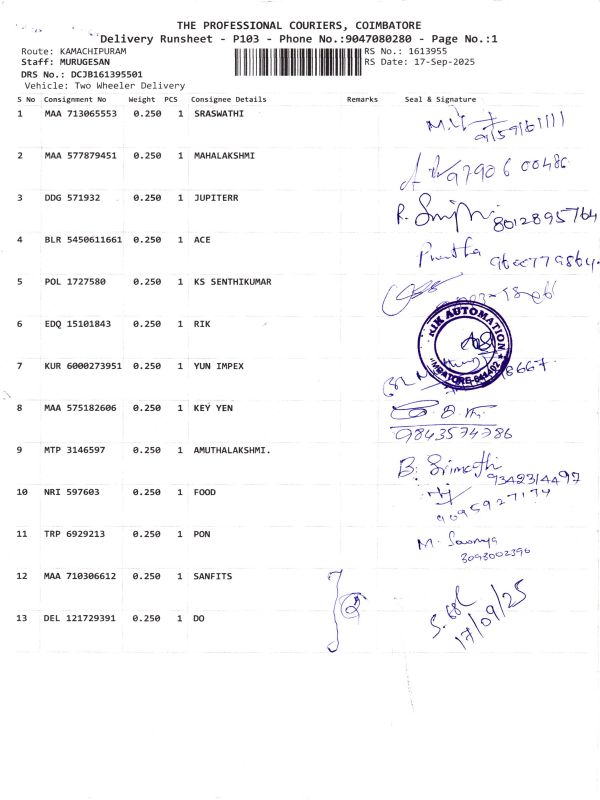 THE PROFESSIONAL COURIERS, COIMBATORE
Delivery Runsheet - P103 - Phone No.:9047080280 - Page No.:1
Route: KAMACHIPURAM RS No.: 1613955
Staff: MURUGESAN RS Date: 17-Sep-2025
DRS No.: DCJB161395501
Vehicle: Two Wheeler Delivery
S No Consignment No Weight PCS Consignee Details Remarks Seal & Signature
1 MAA 713065553 0.250 1 SRASWATHI
2 MAA 577879451 0.250 1 MAHALAKSHMI 9790600486
3 DDG 571932 0.250 1 JUPITERR R. 8012895764
4 BLR 5450611661 0.250 1 ACE
5 POL 1727580 0.250 1 KS SENTHIKUMAR
6 EDQ 15101843 0.250 1 RIK RIK AUTOMATION
7 KUR 6000273951 0.250 1 YUN IMPEX
8 MAA 575182606 0.250 1 KEY YEN
9843574786
9 MTP 3146597 0.250 1 AMUTHALAKSHMI. B. Srimathi 9342314497
10 NRI 597603 0.250 1 FOOD 9095927174
11 TRP 6929213 0.250 1 PON M. Sowmya
3093002396
12 MAA 710306612 0.250 1 SANFITS
13 DEL 121729391 0.250 1 DO 17/09/25